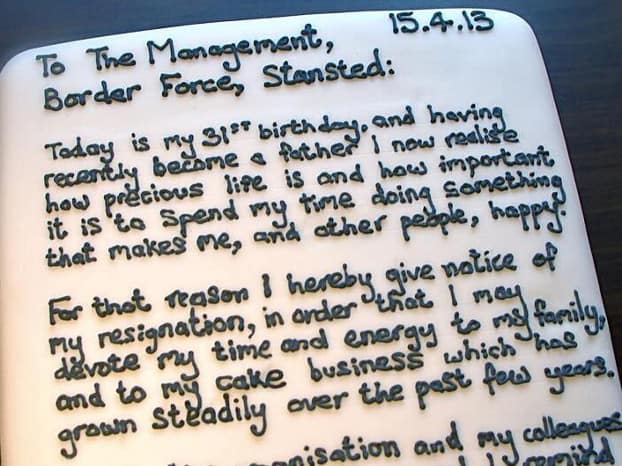 15.4.13
To The Management,
Border Force, Stansted:
Today is my 31ST birthday, and having
recently become a father I now realise
how precious life is and how important
it is to spend my time doing something
that makes me, and other people, happy.
For that reason I hereby give notice of
my resignation, in order that I may
devote my time and energy to my family,
and to my cake business which has
grown steadily over the past few years.
and my colleagues